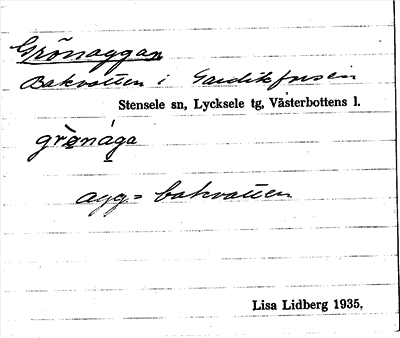 Grönaggan
Bakvatten i Gardikforsen
Stensele sn, Lycksele tg, Västerbottens l.
grö̀nága
agg = bakvatten
Lisa Lidberg 1935.